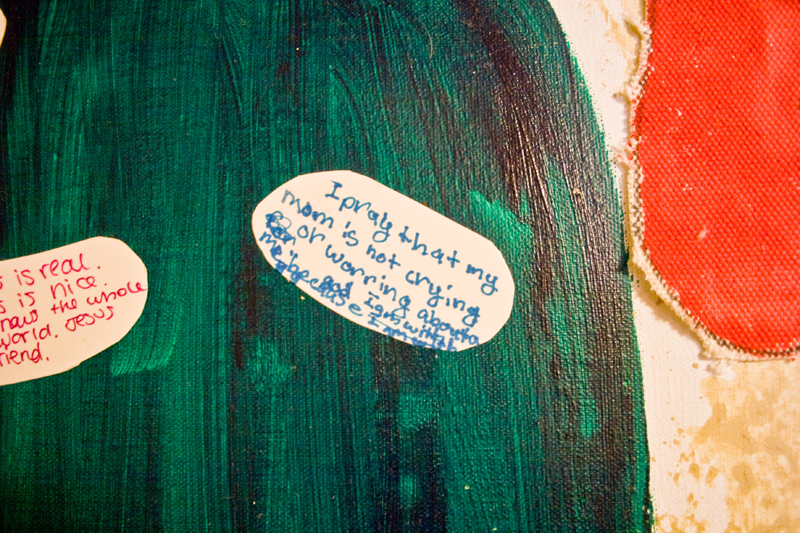 s is real.
s is nice.
naw the whole
world. Jesus
riend.
I pray that my
mom is not crying
or worring about
me god I am with
because I am